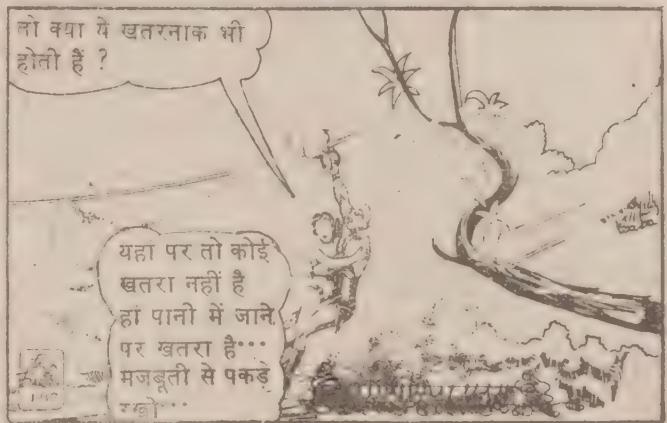 तो क्या ये खतरनाक भी
होती हैं ?
यहां पर तो कोई
खतरा नहीं है
हां पानी में जाने
पर खतरा है...
मजबूती से पकड़े
रखो...